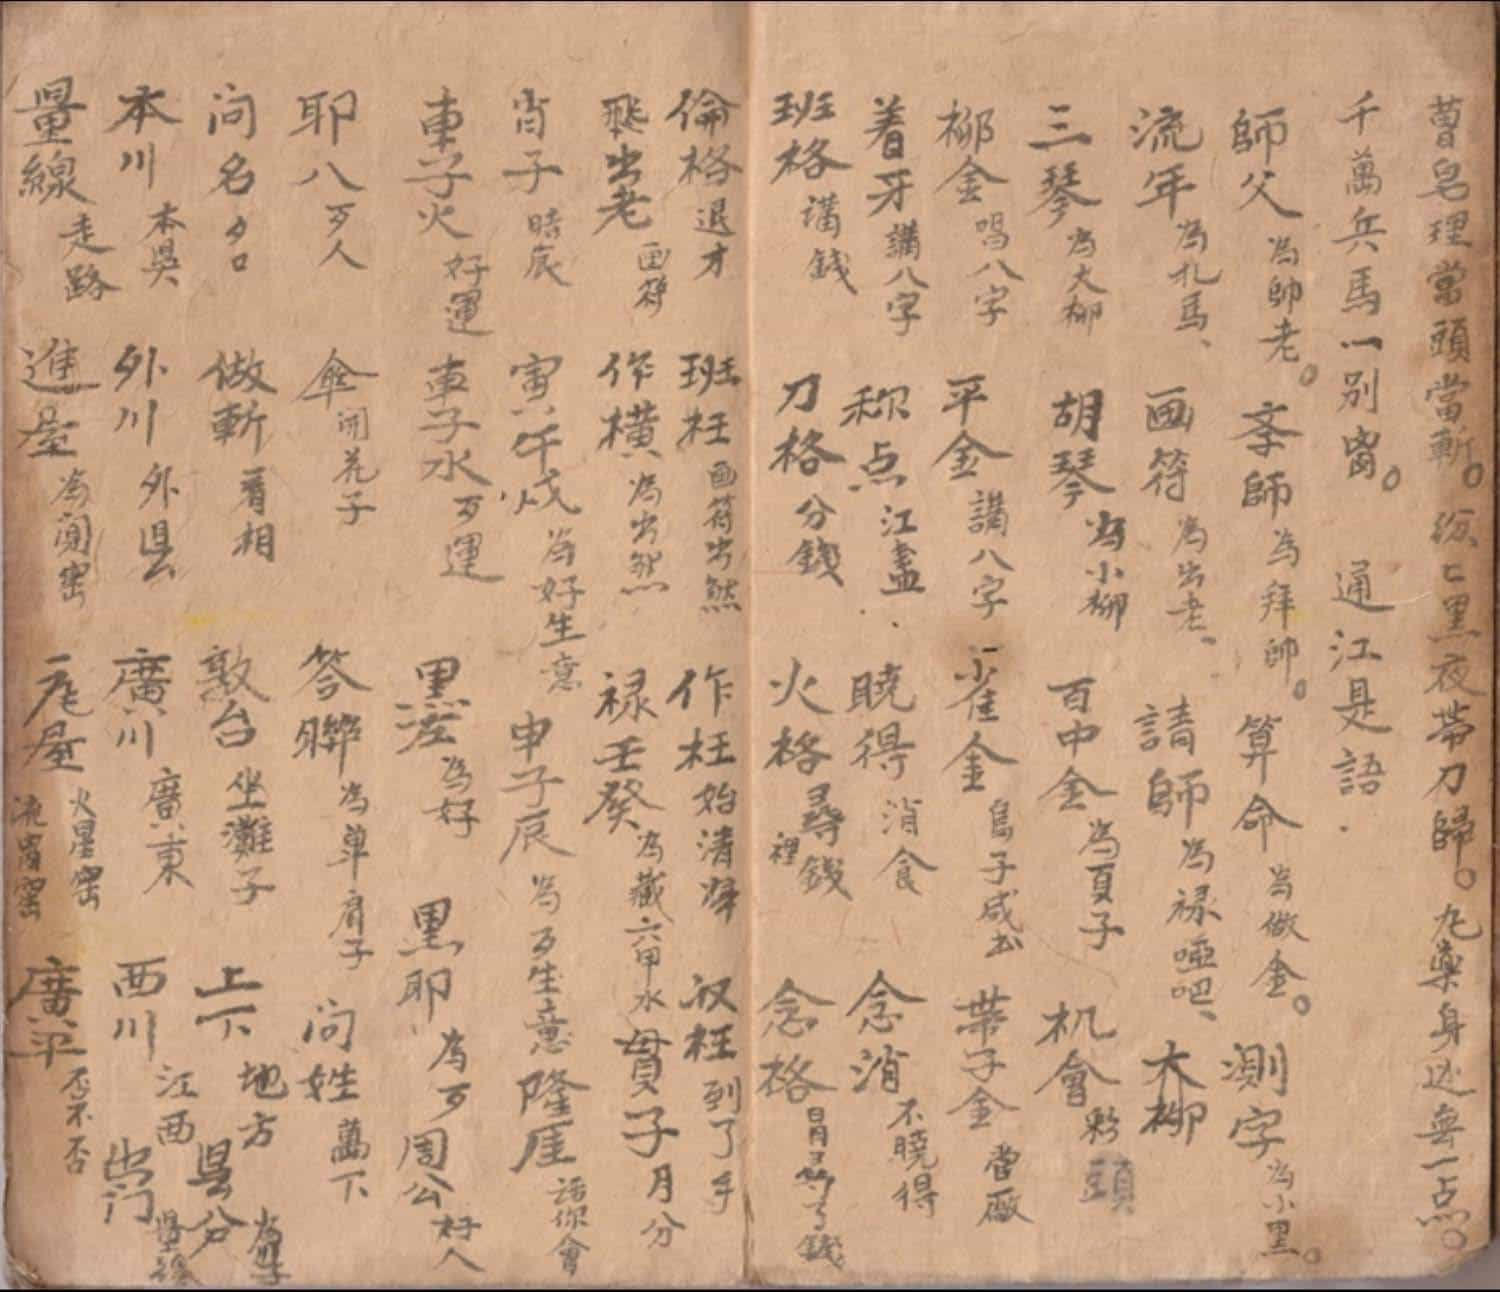 曹皂理當頭當斬。紛〻黑夜帶刀歸。九藥身边無一点。
千萬兵馬一別 通江是語.
師父 為師老。 拜師 為拜師。 算命 為做金。 測字 為小黑。
流年 為扎馬、 画符 為出老、 請師 為禄啞吧、 大柳
三琴 為大柳 胡琴 為小柳 百中金 為頁子 机會 彩頭
柳金 唱八字 平金 講八字 雀金 鳥子 帶子金
着牙 講八字 称点 江盡 曉得 消食 念消 不曉得
班格 講錢 刀格 分錢 火格 尋錢 裡 念格 了錢
倫格 退才 班枉 画符出然 作枉 始清 枉 到了手
飛出老 画符 作横 為出然 禄壬癸 為藏六甲水 貫子 月分
宵子 時辰 寅午戌 為好生意 申子辰 為歹生意 隆 話你會
車子火 好運 車子水 歹運 黑 為好 黑耶 為歹 周公 好人
耶八 歹人 傘 開花子 答聯 為单肩子 问姓 萬下
问名 夕口 做斬 看相 敦台 坐灘子 上下 地方 县分
本川 本県 外川 外县 廣川 廣東 西川 江西 出门
量線 走路 進屋 為闖窑 屋 火星窑 流窑 廣平 否不否